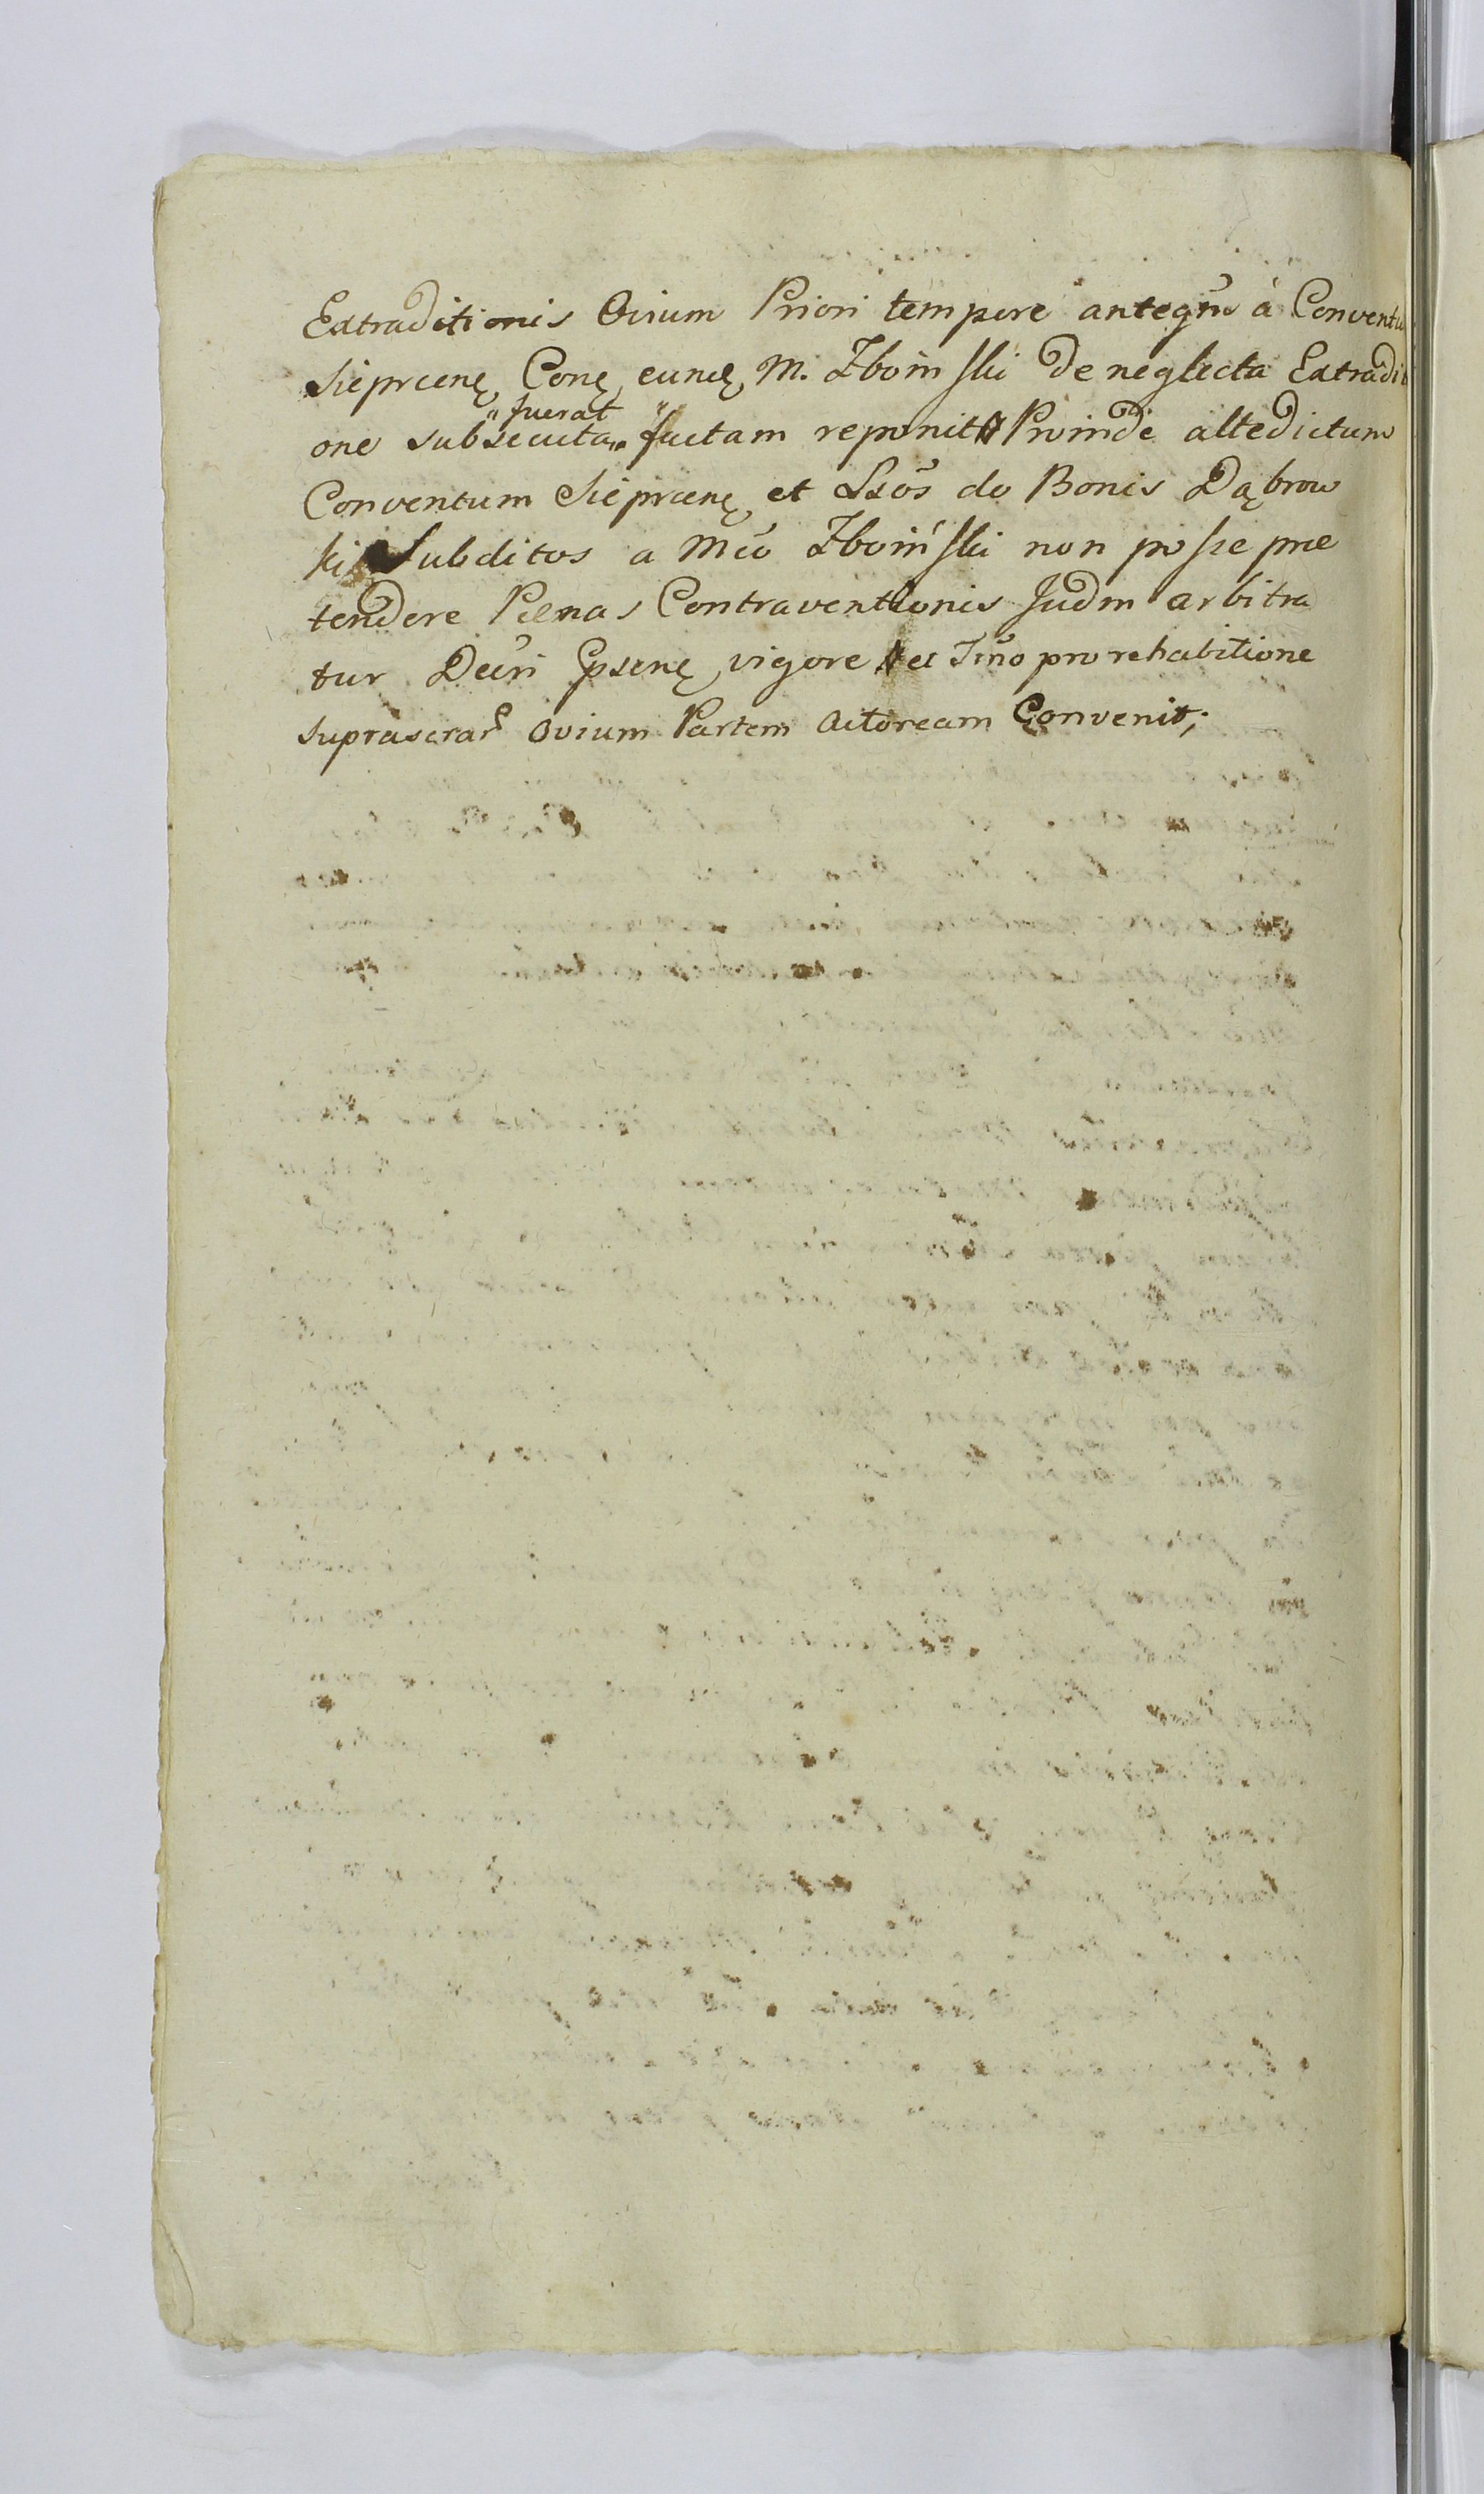 Extraditionis Ovium Priori tempore antegnõ á Conventu
Sieprcenę Conę euncę M. Zboinski de neglecta Extradi
one subsecuta „fuerat” factam reponit Proinde altedictum
Conventum Sieprcenę et Lsõs de Bonis Dąbrow
ki Subditos a Mco Zboinski non posse præ
tendere Pænas Contraventionis Judm arbitra
tur Decri Ipsenę vigore et Imo pro rehabitione
suprascrar Ovium Partem Actoream Convenit;